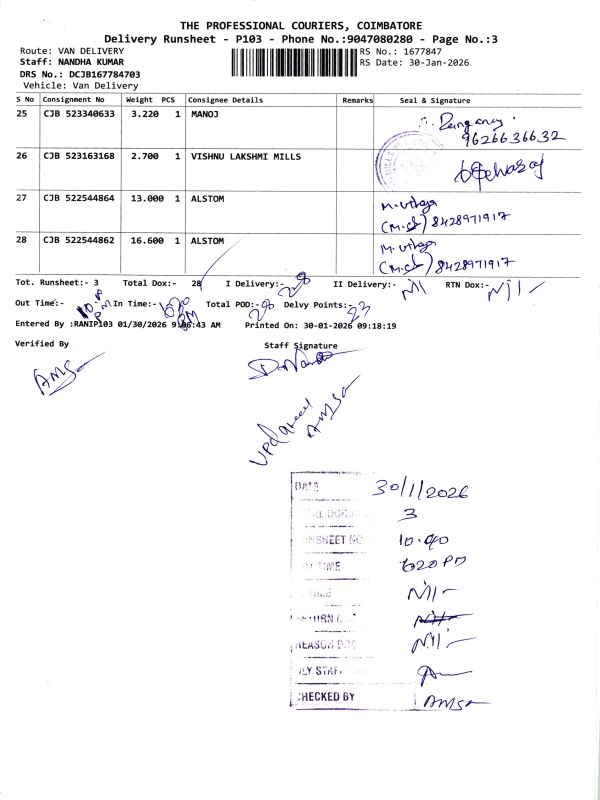 THE PROFESSIONAL COURIERS, COIMBATORE
Delivery Runsheet - P103 - Phone No.:9047080280 - Page No.:3
Route: VAN DELIVERY RS No.: 1677847
Staff: NANDHA KUMAR RS Date: 30-Jan-2026
DRS No.: DCJB167784703
Vehicle: Van Delivery
S No Consignment No Weight PCS Consignee Details Remarks Seal & Signature
25 CJB 523340633 3.220 1 MANOJ
9626636632
26 CJB 523163168 2.700 1 VISHNU LAKSHMI MILLS
27 CJB 522544864 13.000 1 ALSTOM
8428971917
28 CJB 522544862 16.600 1 ALSTOM
8428971917
Tot. Runsheet:- 3 Total Dox:- 28 I Delivery:- 28 II Delivery:- Nil RTN Dox:- Nil-
Out Time:- In Time:- Total POD:- 28 Delvy Points:- 23
Entered By :RANIP103 01/30/2026 9:06:43 AM Printed On: 30-01-2026 09:18:19
Verified By Staff Signature
AMSA
Updated AMSA
DATE 30/1/2026
3
10.40
TIME 620 PM
Nil-
Nil-
Nil-
CHECKED BY AMSA